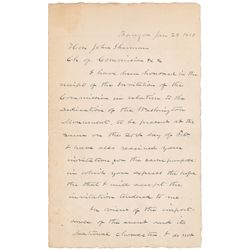 Bangor Jan 29 1885
Hon John Sherman
Ch of Commission &c
I have been honored in the
receipt of the Invitation of the
Commission in relation to the
dedication of the Washington
Monument, to be present at the
same on the 20th day of Feb.
I have also received your
invitation for the same purpose
in which you express the hope
that I will accept the
invitation tendered to me
In view of the import-
ance of the event and its
National Character I do not